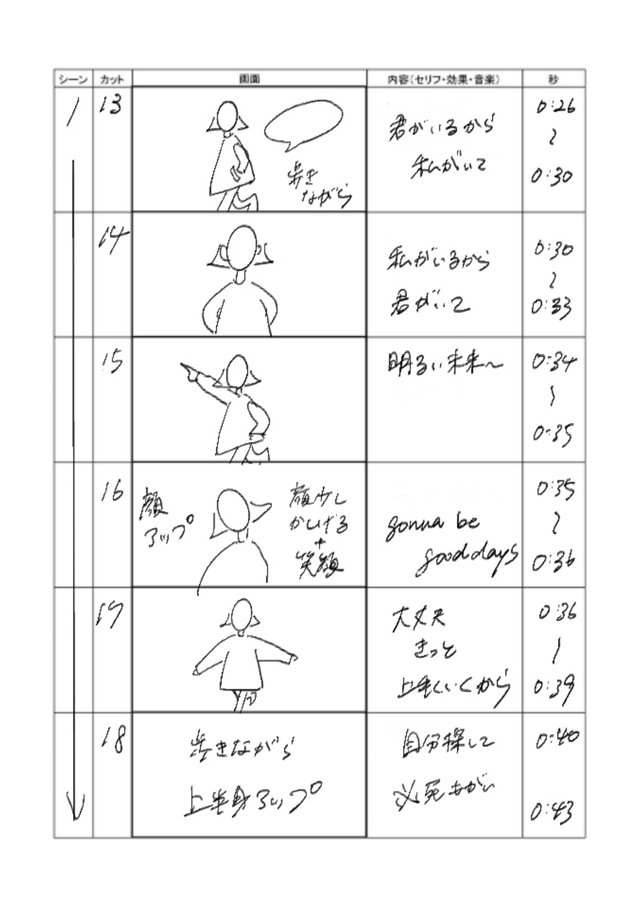 シーン カット 画面 内容(セリフ・効果・音楽) 秒
1 13
歩き
ながら
君がいるから
私がいて
0:26
〜
0:30
14
私がいるから
君がいて
0:30
〜
0:33
15
明るい未来〜
0:34
〜
0:35
16
顔
アップ
顔少し
かしげる
+
笑顔
gonna be
good days
0:35
〜
0:36
17
大丈夫
きっと
上手くいくから
0:36
〜
0:39
18
歩きながら
上半身アップ
自分探して
必死もがい
0:40
0:43